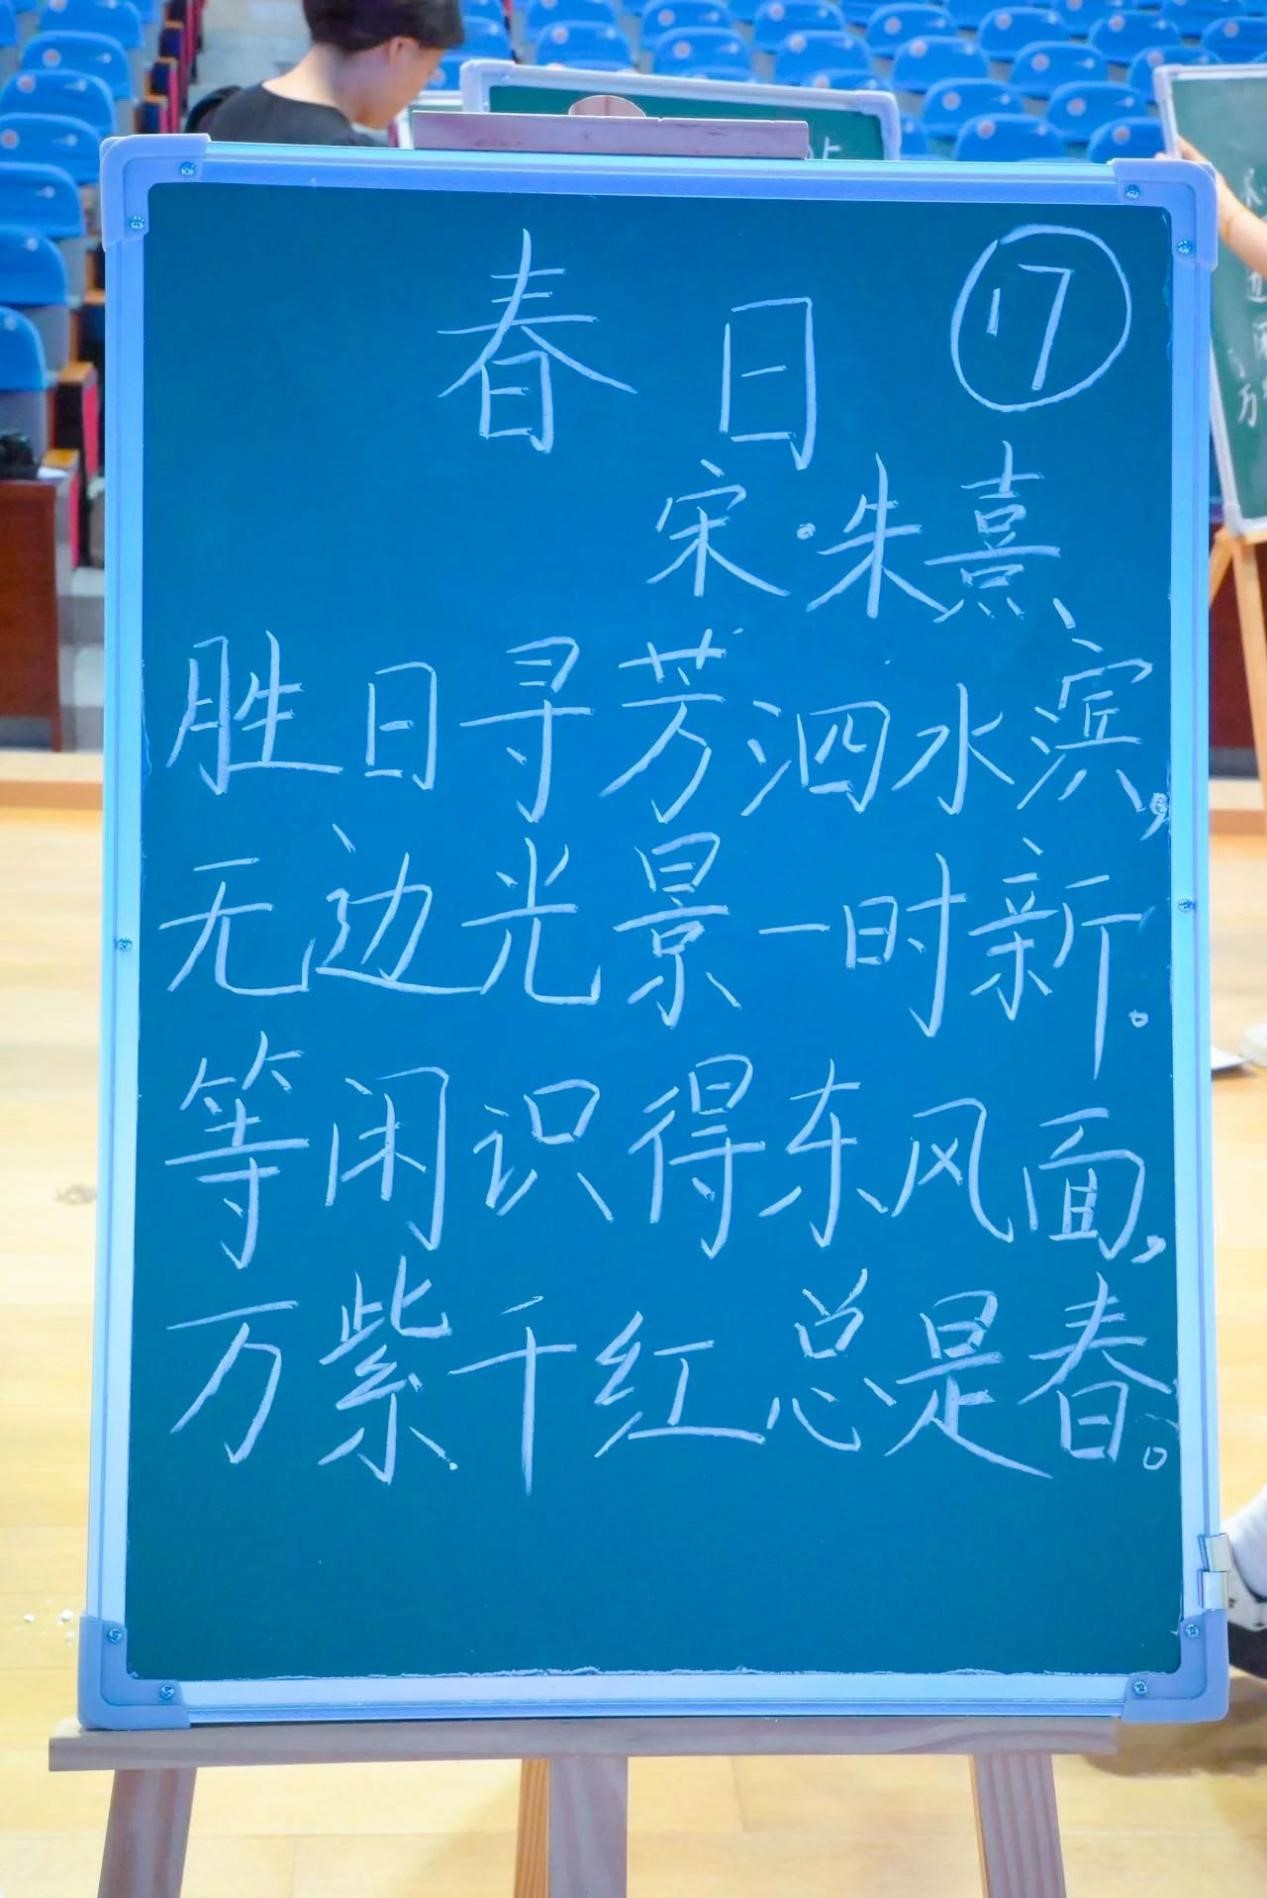 春日
⑰
宋·朱熹
胜日寻芳泗水滨,
无边光景一时新。
等闲识得东风面,
万紫千红总是春。
万